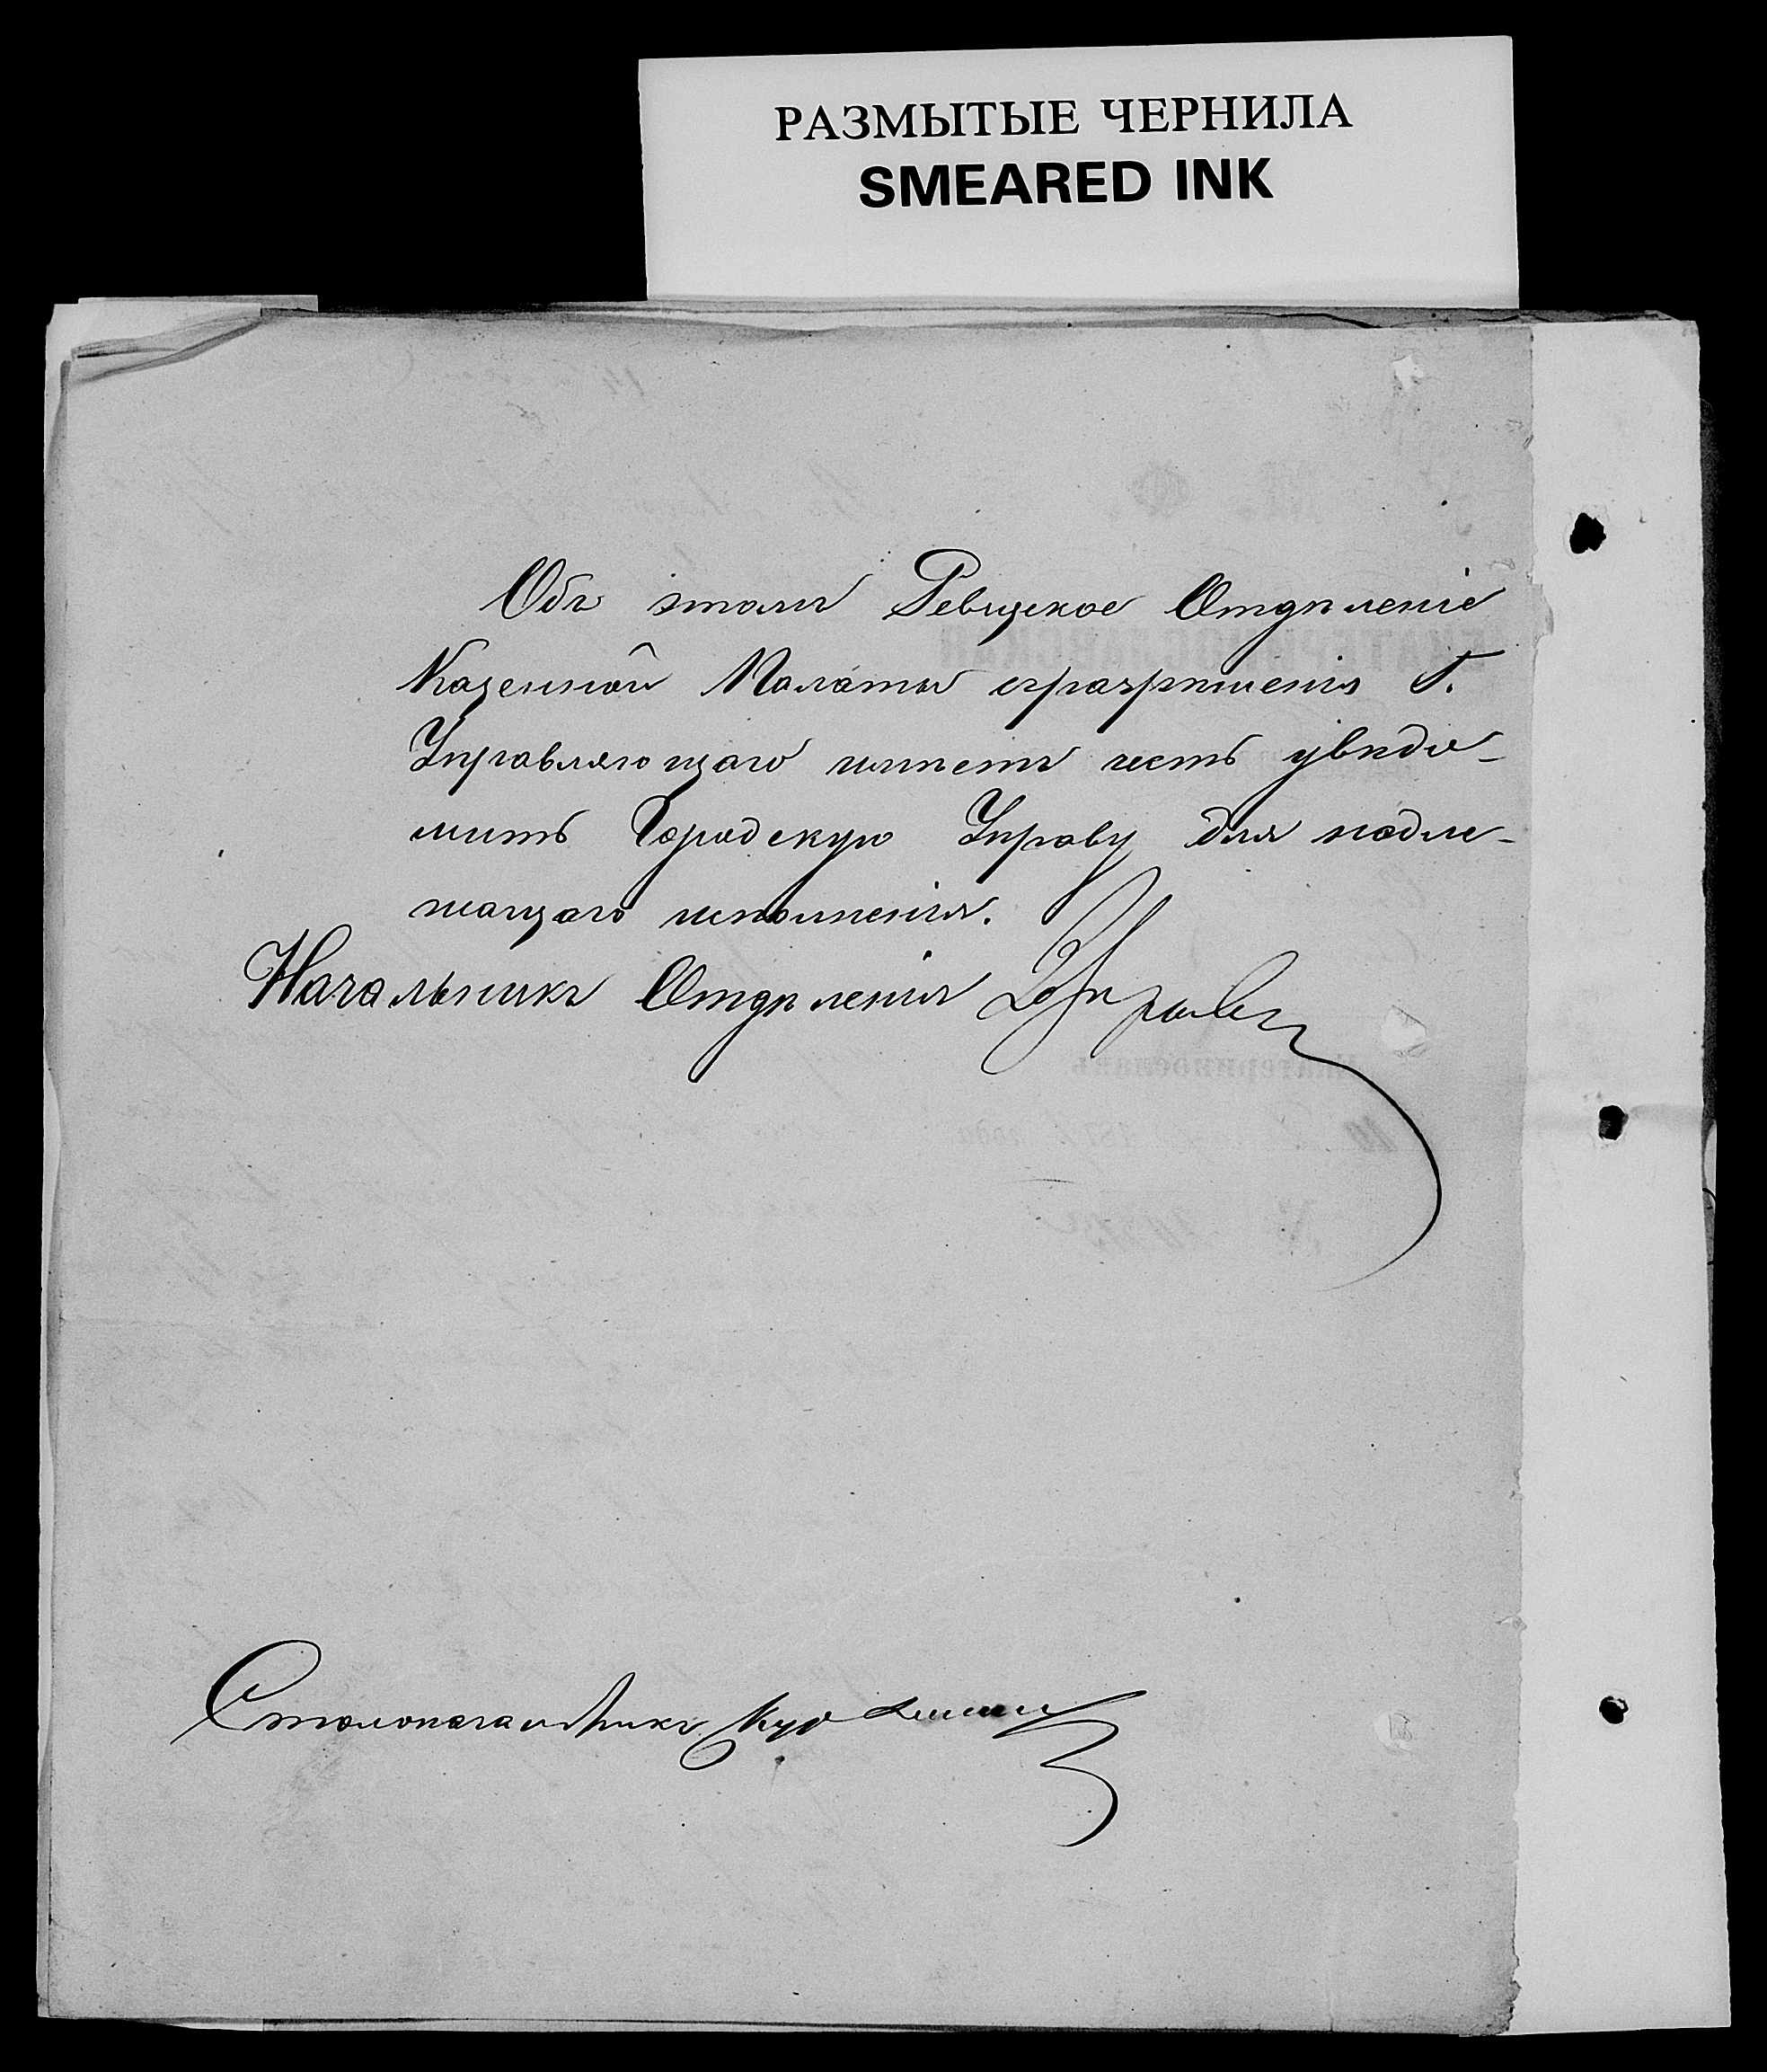 РАЗМЫТЫЕ ЧЕРНИЛА
SMEARED INK
Объ этомъ Ревизское Отдѣленіе
Казенной Палаты съ разрѣшенія Г.
Управляющаго имѣетъ честь увѣдо-
мить Городскую Управу для надле-
жащаго исполненія.
Начальникъ Отдѣленія
Столоначальникъ